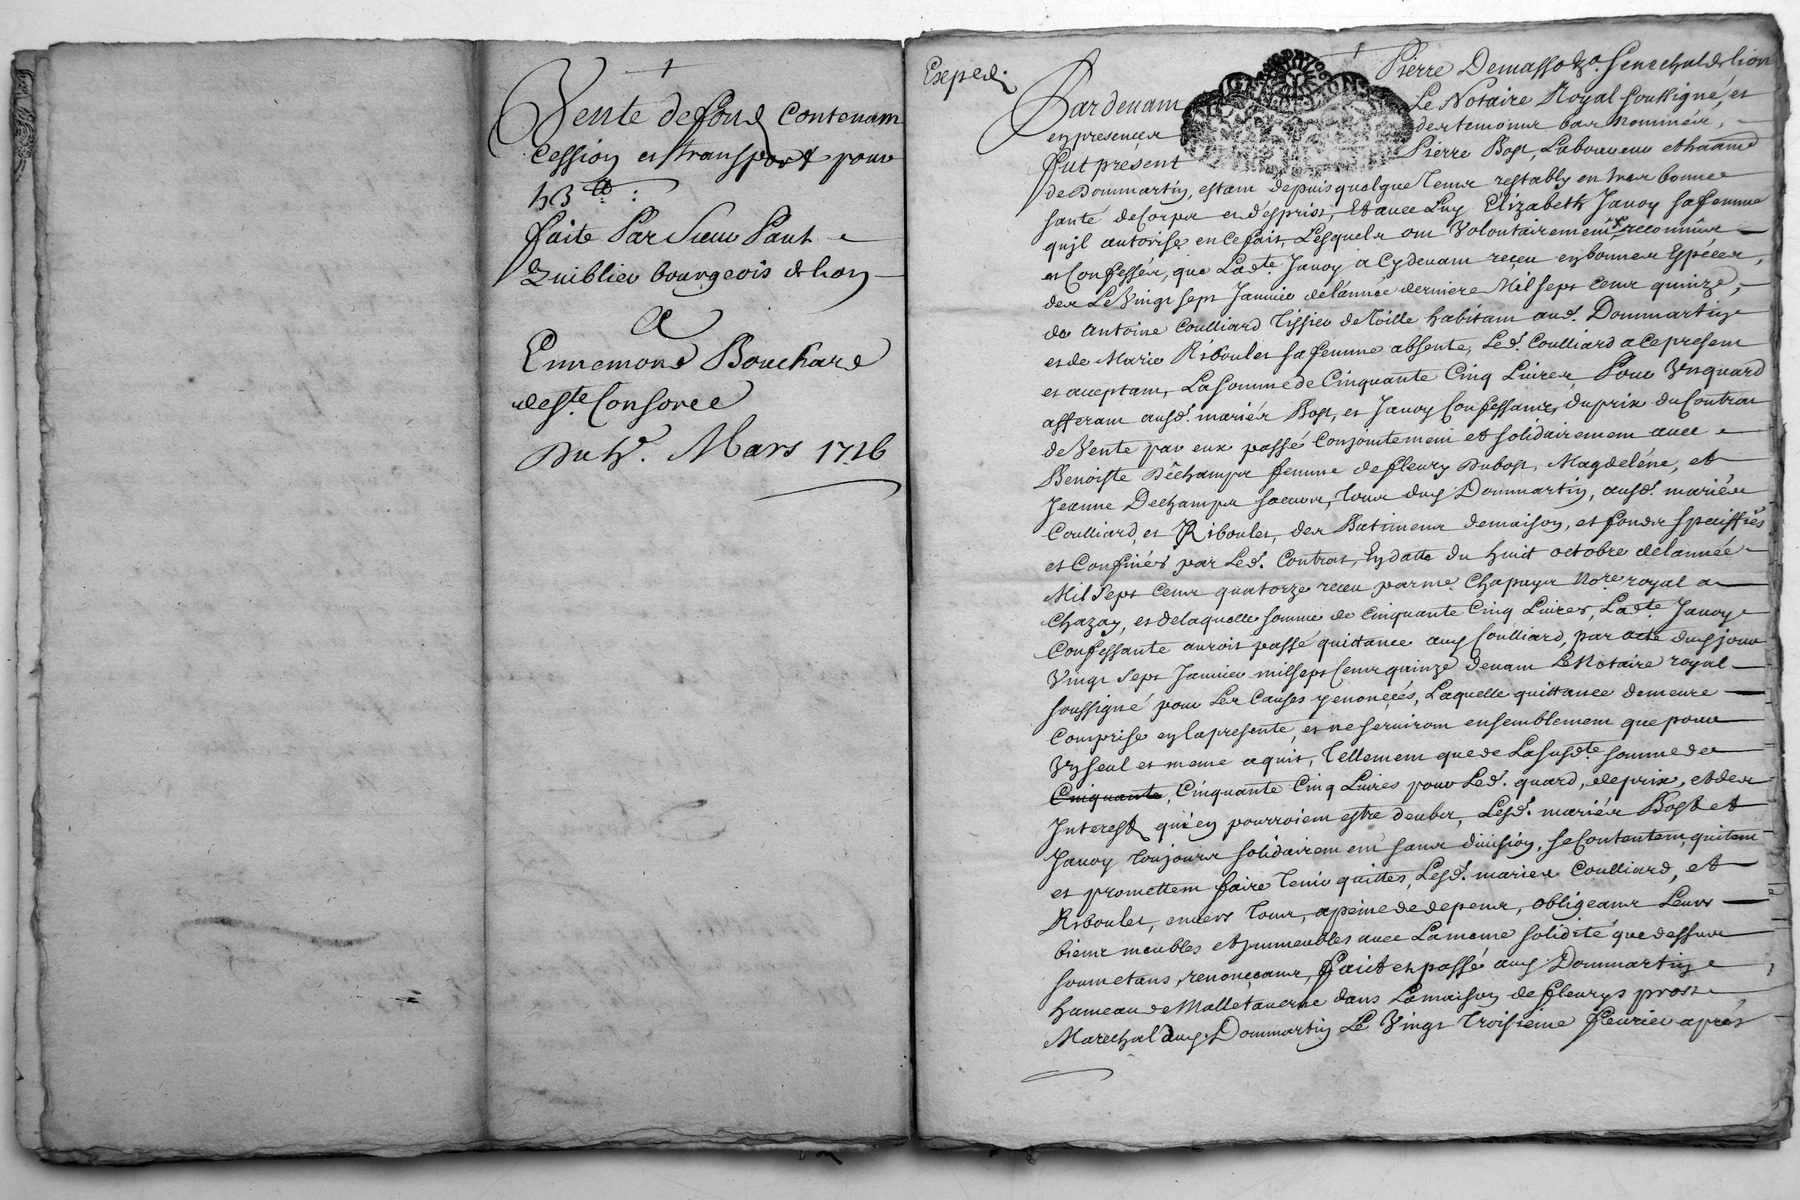 Vente de fond contenam
cession et transport pour
faite Par Sieur Paul
Guiblieu bourgeois de Lion
A
Ennemond Bouchard
de Ste. Consorce
Mars 1716
Exped.
Pierre Demasso Senechal de lion
Pardevam Le Notaire Royal soussigné, et
en presences des temoins bas nommés,
fut present Pierre Bost, Laboureur
de Dommartin, estam depuis quelque temps restably en bonne
santé de Corps et d'esprit, Et avec Luy Elizabeth Janoy sa femme
qu'jl autorise en ce fait, Lesquels om Volontairement reconnus
et Confessés, que Ladte. Janoy a Cydevam reçeu en bonnes Espéces,
des Le Vingt sept Janvier de l'année derniere Mil sept cens quinze,
de Antoine Coulliard Tissieu de Toille habitam aud. Dommartin
et de Marie Riboulet sa femme absente, Led. Coulliard a ce presem
et acceptam, La somme de Cinquante Cinq Livres, Pour Vn quard
afferam ausd. mariés Bost, et Janoy Confessants, du prix du Contrau
de Vente par eux passé Conjointement et solidairemem avec
Benoiste Dêchamps femme de fleury Dubost, Magdeléne, et
Jeanne Dechamps soeurs, tous dud Dommartin, ausd. mariés
Coulliard, et Riboulet, des Batimens de maison, et fonds speciffiés
et Confinés par Led. Contrat, En datte du huit octobre de l'année
Mil Sept Cens quatorze receu par me Chapuys Nore. royal a
Chazay, et de laquelle somme de Cinquante Cinq Livres, Ladte. Janoy
Confessante auroit passé quittance aud Coulliard, par acte dud jour
Vingt Sept Janvier mil sept Cens quinze devam Le Notaire royal
soussigné pour Les Causes y enoncées, Laquelle quittance demeure
Comprise en la presente, et ne servirom ensemblemem que pour
Vn seul et meme aquit, Tellement que de La susdte. somme de
Cinquante, Cinquante Cinq Livres pour Led. quard, de prix, et des
Interest qui en pourroiem estre deubs, Lesd. mariés Bost et
Janoy toujours solidairem em sans division, se Contentem, quitem
et promettem faire tenir quittes, Lesd. mariés Coulliard, et
Riboulet, envers tous, a peine de depens, obligeans Leurs
biens meubles et jmmeubles avec La meme solidité que dessus
soumetans, renonçeans, fait et passé aud Dommartin
hameau de Malletaverne dans La maison de fleurys prost
Marechal dud. Dommartin Le Vingt Troisieme feurier aprés